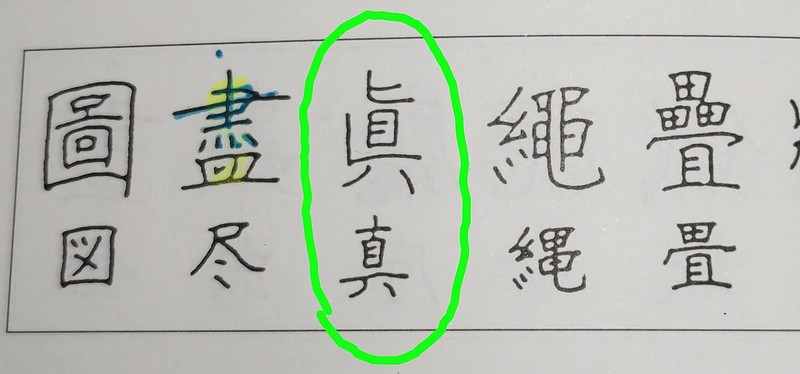 圖 盡 眞 繩 疊
図 尽 真 縄 畳